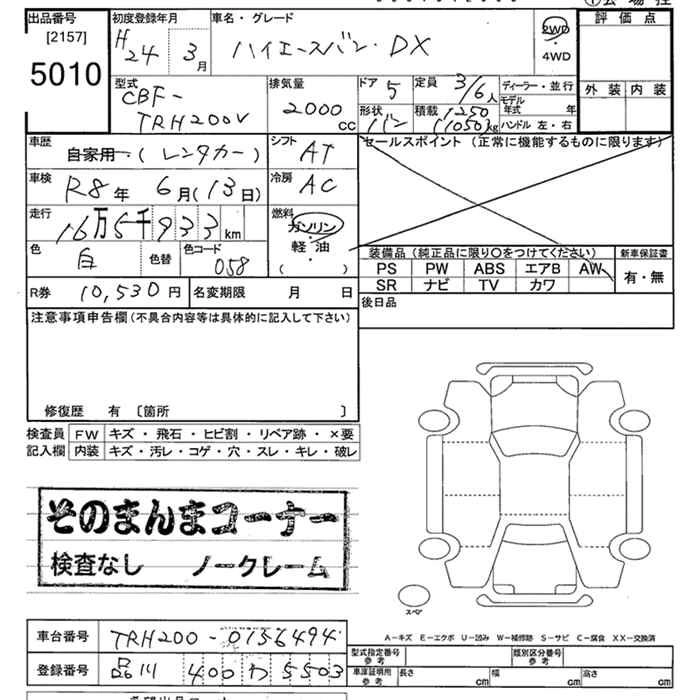 出品番号 [2157] 5010
初度登録年月 H24 3月
車名・グレード ハイエースバン DX
2WD・4WD
評価点
外装 内装
型式 CBF-TRH200V
排気量 2000cc
ドア 5
定員 3/6人
ディーラー・並行
形状 バン
積載 1250(1050)kg
モデル年式 年
ハンドル 左・右
車歴 自家用・(レンタカー)
シフト AT
セールスポイント (正常に機能するものに限ります)
車検 R8年 6月(13日)
冷房 AC
走行 16万5千933km
燃料 ガソリン・軽油・( )
色 白 色替
色コード 058
装備品 (純正品に限り〇をつけてください)
新車保証書 有・無
PS PW ABS エアB AW
SR ナビ TV カワ
R券 10,530円
名変期限 月 日
後日品
注意事項申告欄 (不具合内容等は具体的に記入して下さい)
修復歴 有 〔箇所 〕
検査員記入欄
FW キズ・飛石・ヒビ割・リペア跡・×要
内装 キズ・汚レ・コゲ・穴・スレ・キレ・破レ
そのまんまコーナー
検査なし ノークレーム
スペア
A−キズ E−エクボ U−凹み W−補修跡 S−サビ C−腐食 XX−交換済
車台番号 TRH200-0156494
登録番号 品川 400 わ 5503
型式指定番号 参考
類別区分番号 参考
車庫証明用 参考 長さ cm 幅 cm 高さ cm